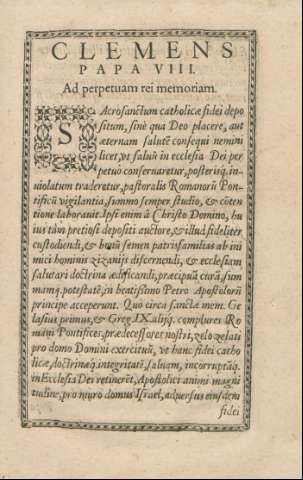 CLEMENS
PAPA VIII.
Ad perpetuam rei memoriam.
SAcrosanctum catholicæ fidei depo
situm, sinè qua Deo placere, aut
æternam salutē consequi nemini
licet, vt saluū in ecclesia Dei per
petuò conseruaretur, posterisq́, in-
uiolatum traderetur, pastoralis Romanorū Pon-
tificū vigilantia, summo semper studio, & cōten
tione laborauit. Ipsi enim à Christo Domino, hu
ius tàm pretiosi depositi auctore, & illud fideliter
custodiendi, & bonū semen patrisfamilias ab ini
mici hominis zizanijs discernendi, & ecclesiam
salutari doctrina ædificandi, præcipuā curā, sum
mamq́, potestatē, in beatissimo Petro Apostolorū
principe acceperunt. Quo circa sanctæ mem. Ge
lasius primus, & Greg. IX. alijq́, complures Ro
mani Pontifices, prædecessores nostri, zelo zelati
pro domo Domini exercituū, vt hanc fidei catho
licæ, doctrinæq́, integritatē, saluam, incorruptāq́,
in Ecclesia Dei retinerēt, Apostolici animi magni
tudine, pro muro domus Israel, aduersus eiusdem
fidei